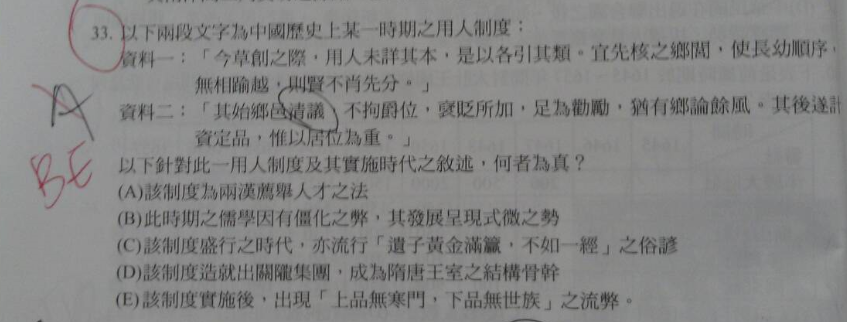 33. 以下兩段文字為中國歷史上某一時期之用人制度：
資料一：「今草創之際，用人未詳其本，是以各引其類。宜先核之鄉閭，使長幼順序，
無相踰越，則賢不肖先分。」
A
資料二：「其始鄉邑清議，不拘爵位，褒貶所加，足為勸勵，猶有鄉論餘風。其後遂計
資定品，惟以居位為重。」
BE
以下針對此一用人制度及其實施時代之敘述，何者為真？
(A)該制度為兩漢薦舉人才之法
(B)此時期之儒學因有僵化之弊，其發展呈現式微之勢
(C)該制度盛行之時代，亦流行「遺子黃金滿籯，不如一經」之俗諺
(D)該制度造就出關隴集團，成為隋唐王室之結構骨幹
(E)該制度實施後，出現「上品無寒門，下品無世族」之流弊。